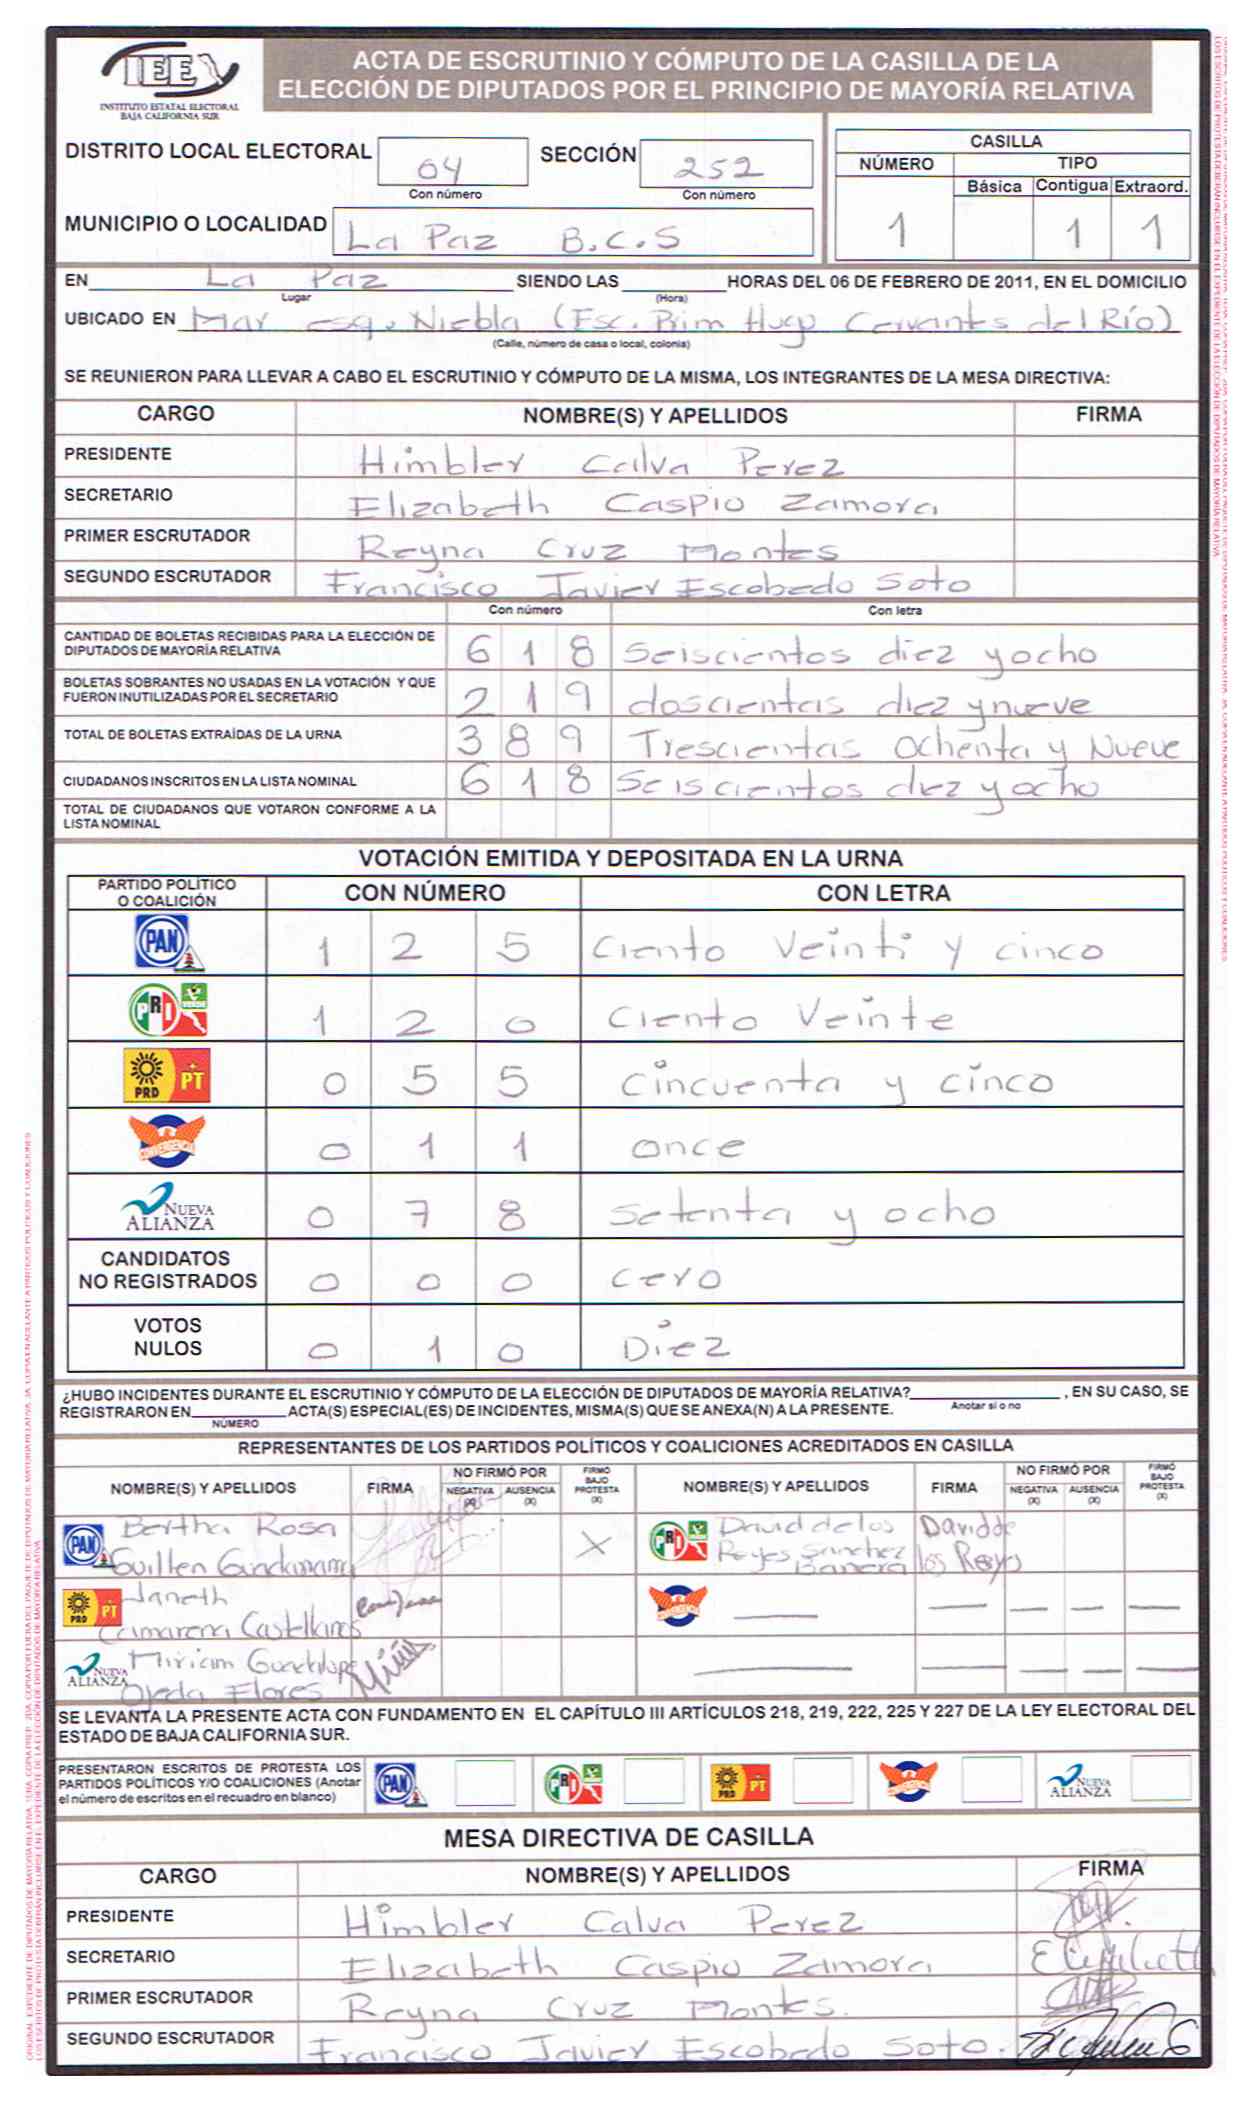 IEE
INSTITUTO ESTATAL ELECTORAL
BAJA CALIFORNIA SUR
ACTA DE ESCRUTINIO Y CÓMPUTO DE LA CASILLA DE LA
ELECCIÓN DE DIPUTADOS POR EL PRINCIPIO DE MAYORÍA RELATIVA
DISTRITO LOCAL ELECTORAL 04 SECCIÓN 252
Con número Con número
MUNICIPIO O LOCALIDAD La Paz B.C.S
CASILLA
NÚMERO TIPO
Básica Contigua Extraord.
1 1 1
EN La Paz SIENDO LAS HORAS DEL 06 DE FEBRERO DE 2011, EN EL DOMICILIO
Lugar (Hora)
UBICADO EN Mar esq. Niebla (Esc. Prim Hugo Cervantes del Río)
(Calle, número de casa o local, colonia)
SE REUNIERON PARA LLEVAR A CABO EL ESCRUTINIO Y CÓMPUTO DE LA MISMA, LOS INTEGRANTES DE LA MESA DIRECTIVA:
CARGO NOMBRE(S) Y APELLIDOS FIRMA
PRESIDENTE Himbler Calva Perez
SECRETARIO Elizabeth Caspio Zamora
PRIMER ESCRUTADOR Reyna Cruz Montes
SEGUNDO ESCRUTADOR Francisco Javier Escobedo Soto
Con número Con letra
CANTIDAD DE BOLETAS RECIBIDAS PARA LA ELECCIÓN DE
DIPUTADOS DE MAYORÍA RELATIVA 6 1 8 Seiscientos diez y ocho
BOLETAS SOBRANTES NO USADAS EN LA VOTACIÓN Y QUE
FUERON INUTILIZADAS POR EL SECRETARIO 2 1 9 doscientas diez y nueve
TOTAL DE BOLETAS EXTRAÍDAS DE LA URNA 3 8 9 Trescientas Ochenta y Nueve
CIUDADANOS INSCRITOS EN LA LISTA NOMINAL 6 1 8 Seiscientos diez y ocho
TOTAL DE CIUDADANOS QUE VOTARON CONFORME A LA
LISTA NOMINAL
VOTACIÓN EMITIDA Y DEPOSITADA EN LA URNA
PARTIDO POLÍTICO
O COALICIÓN CON NÚMERO CON LETRA
PAN 1 2 5 Ciento Veinti y cinco
PRI VERDE 1 2 0 Ciento Veinte
PRD PT 0 5 5 Cincuenta y cinco
CONVERGENCIA 0 1 1 once
NUEVA ALIANZA 0 7 8 Setenta y ocho
CANDIDATOS
NO REGISTRADOS 0 0 0 cero
VOTOS
NULOS 0 1 0 Diez
¿HUBO INCIDENTES DURANTE EL ESCRUTINIO Y CÓMPUTO DE LA ELECCIÓN DE DIPUTADOS DE MAYORÍA RELATIVA? , EN SU CASO, SE
Anotar sí o no
REGISTRARON EN ACTA(S) ESPECIAL(ES) DE INCIDENTES, MISMA(S) QUE SE ANEXA(N) A LA PRESENTE.
NÚMERO
REPRESENTANTES DE LOS PARTIDOS POLÍTICOS Y COALICIONES ACREDITADOS EN CASILLA
NOMBRE(S) Y APELLIDOS FIRMA NO FIRMÓ POR NEGATIVA (X) AUSENCIA (X) FIRMÓ BAJO PROTESTA (X) NOMBRE(S) Y APELLIDOS FIRMA NO FIRMÓ POR NEGATIVA (X) AUSENCIA (X) FIRMÓ BAJO PROTESTA (X)
PAN Bertha Rosa
Guillen Guadarrama X
PRI VERDE David de los Davidde
Reyes Sanchez los Reyes
PRD PT Janeth
Camarena Castellanos
CONVERGENCIA
NUEVA ALIANZA Miriam Guadalupe
Ojeda Flores
SE LEVANTA LA PRESENTE ACTA CON FUNDAMENTO EN EL CAPÍTULO III ARTÍCULOS 218, 219, 222, 225 Y 227 DE LA LEY ELECTORAL DEL
ESTADO DE BAJA CALIFORNIA SUR.
PRESENTARON ESCRITOS DE PROTESTA LOS
PARTIDOS POLÍTICOS Y/O COALICIONES (Anotar
el número de escritos en el recuadro en blanco)
PAN PRI VERDE PRD PT CONVERGENCIA NUEVA ALIANZA
MESA DIRECTIVA DE CASILLA
CARGO NOMBRE(S) Y APELLIDOS FIRMA
PRESIDENTE Himbler Calva Perez
SECRETARIO Elizabeth Caspio Zamora Elizabeth
PRIMER ESCRUTADOR Reyna Cruz Montes.
SEGUNDO ESCRUTADOR Francisco Javier Escobedo Soto.